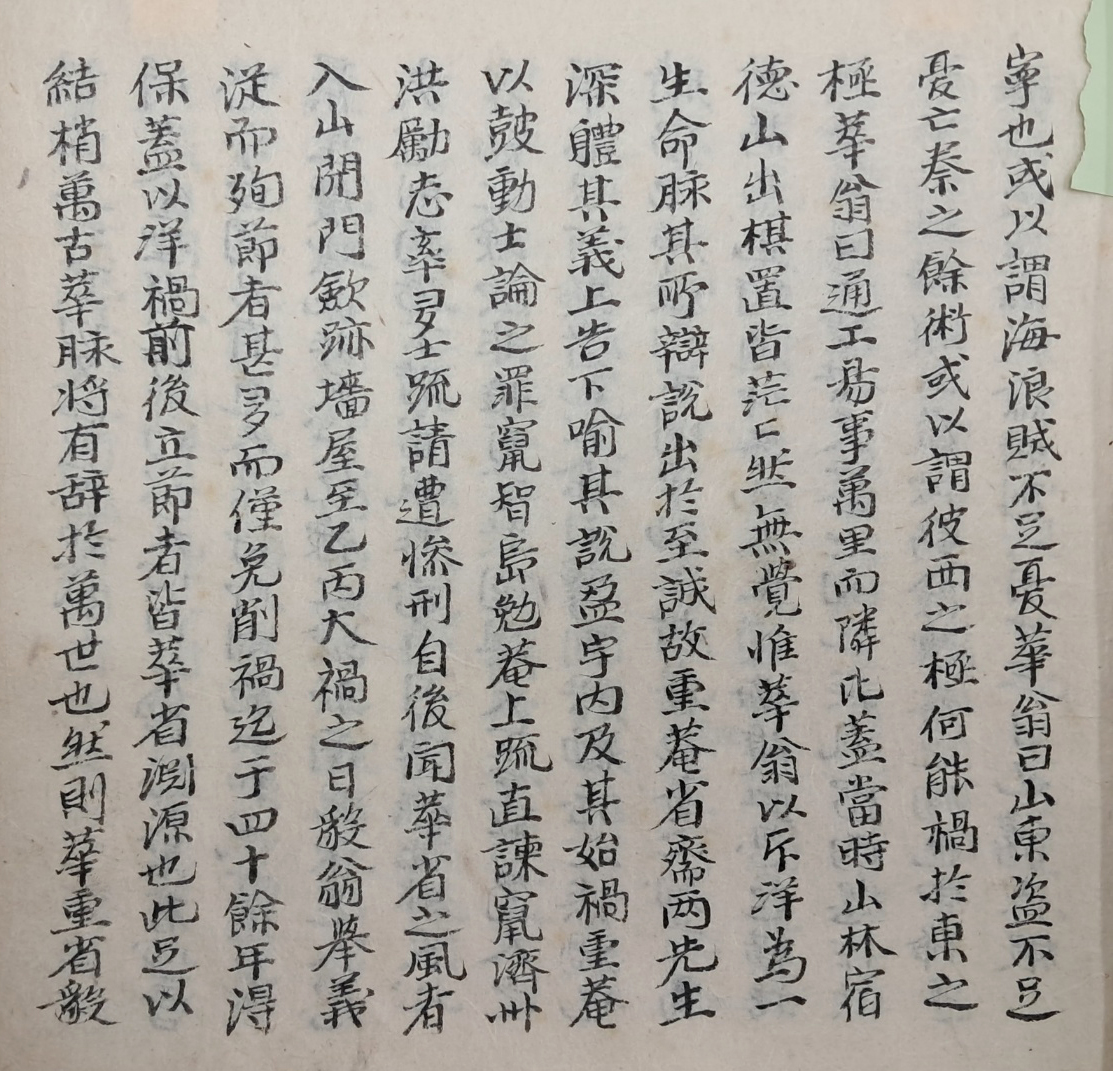 寧也或以謂海浪賊不足憂華翁曰山東盜不足
憂亡秦之餘術或以謂彼西之極何能禍於東之
極華翁曰通工易事萬里而隣比蓋當時山林宿
德山出棋置皆茫〻然無覺惟華翁以斥洋為一
生命脉其所辯說出於至誠故重菴省齋两先生
深軆其義上告下喻其說盈宇内及其始禍重菴
以鼓動士論之罪竄智島勉菴上䟽直諫竄濟州
洪勵志率多士䟽請遭慘刑自後聞華省之風者
入山閉門歛跡墻屋至乙丙大禍之日毅翁舉義
從而殉節者甚多而僅免削禍迄于四十餘年得
保蓋以洋禍前後立節者皆華省淵源也此足以
結梢萬古華脉将有辞於萬世也然則華重省毅